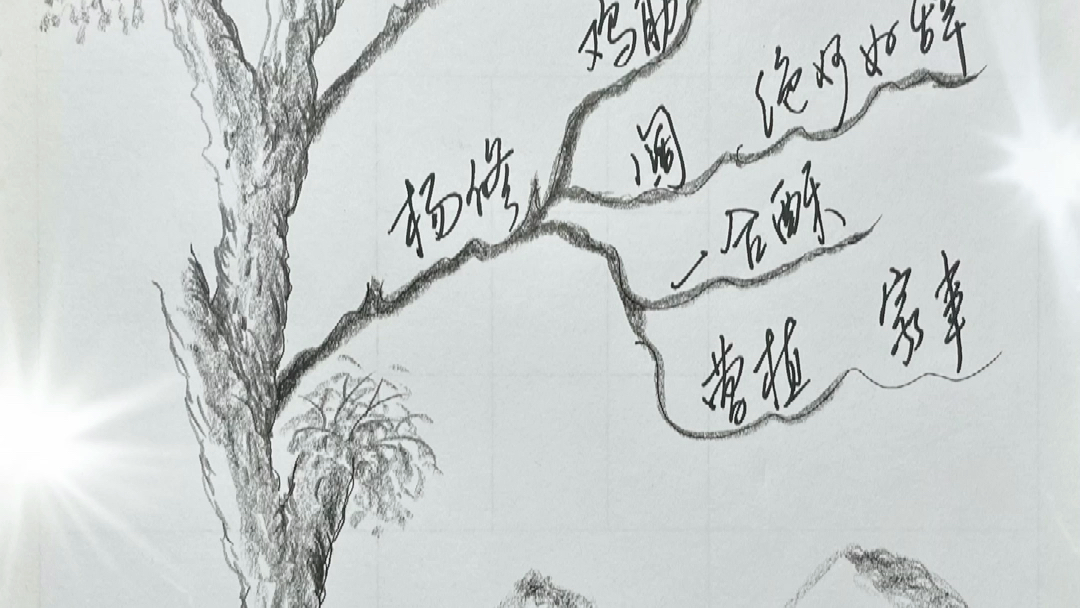 鸡肋
绝妙好辞
阔
杨修
一合酥
曹植 家事